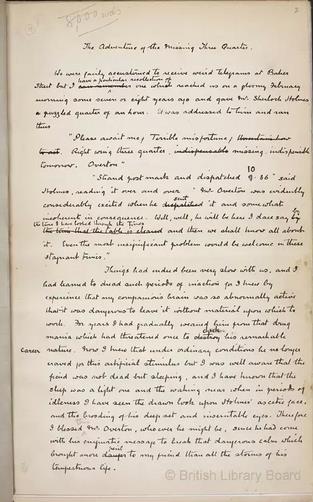 2
8,000 words
The Adventure of the Missing Three Quarter.
We were fairly accustomed to receive weird telegrams at Baker
have a particular recollection of
Street but I can remember one which reached us on a gloomy February
morning some seven or eight years ago and gave Mr. Sherlock Holmes
a puzzled quarter of an hour. It was addressed to him and ran
thus
"Please await me. Terrible misfortune,
Right wing three quarter, indispensable missing, indispensible
tomorrow. Overton"
10
"Strand post mark and dispatched 9.36" said
Holmes, reading it over and over. "Mr Overton was evidently
sent
considerably excited when he despatched it and somewhat
incoherent in consequence. Well, well, he will be here I dare say by
the time I have looked through the Times
the time that the table is cleared and then we shall know all about
it. Even the most insignificant problem would be welcome in these
stagnant times."
Things had indeed been very slow with us, and I
had learned to dread such periods of inaction for I knew by
experience that my companion's brain was so abnormally active
that it was dangerous to leave it without material upon which to
work. For years I had gradually weaned him from that drug
check
mania which had threatened once to destroy his remarkable
career
nature. Now I knew that under ordinary conditions he no longer
craved for this artificial stimulus but I was well aware that the
fiend was not dead but sleeping, and I have known that the
sleep was a light one and the waking near when in periods of
idleness I have seen the drawn look upon Holmes' ascetic face,
and the brooding of his deep set and inscrutable eyes. Therefore
I blessed this Mr. Overton, whoever he might be, since he had come
with his enigmatic message to break that dangerous calm which
peril
brought more danger to my friend than all the storms of his
tempestuous life.
© British Library Board